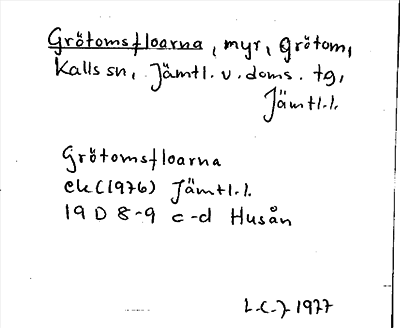 Grötomsfloarna, myr, Grötom,
Kalls sn, Jämtl. v. doms. tg,
Jämtl.l.
Grötomsfloarna
ek (1976) Jämtl.l.
19 D 8-9 c-d Husån
L.C.J. 1977